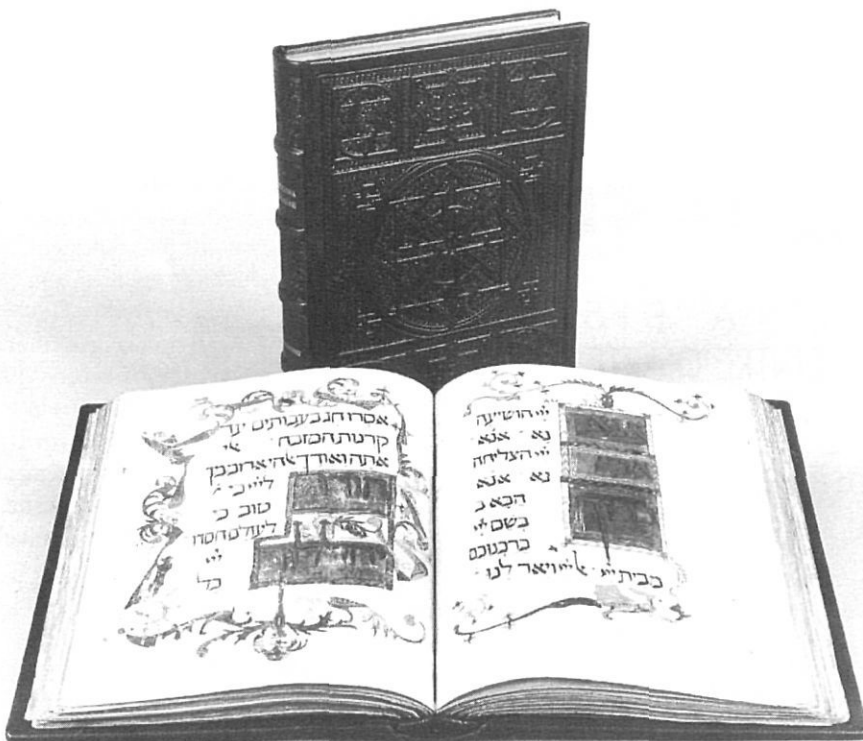 יי הושיעה
נא אנא
יי הצליחה
נא אנא
הבא ב
בשם יי
ברכנוכם
מבית יי אל יי ויאר לנו
אסרו חג בעבותים עד
קרנות המזבח אלי
אתה ואודך אלהי ארוממך
ליי כי
טוב כי
לעולם חסדו
יי
כל